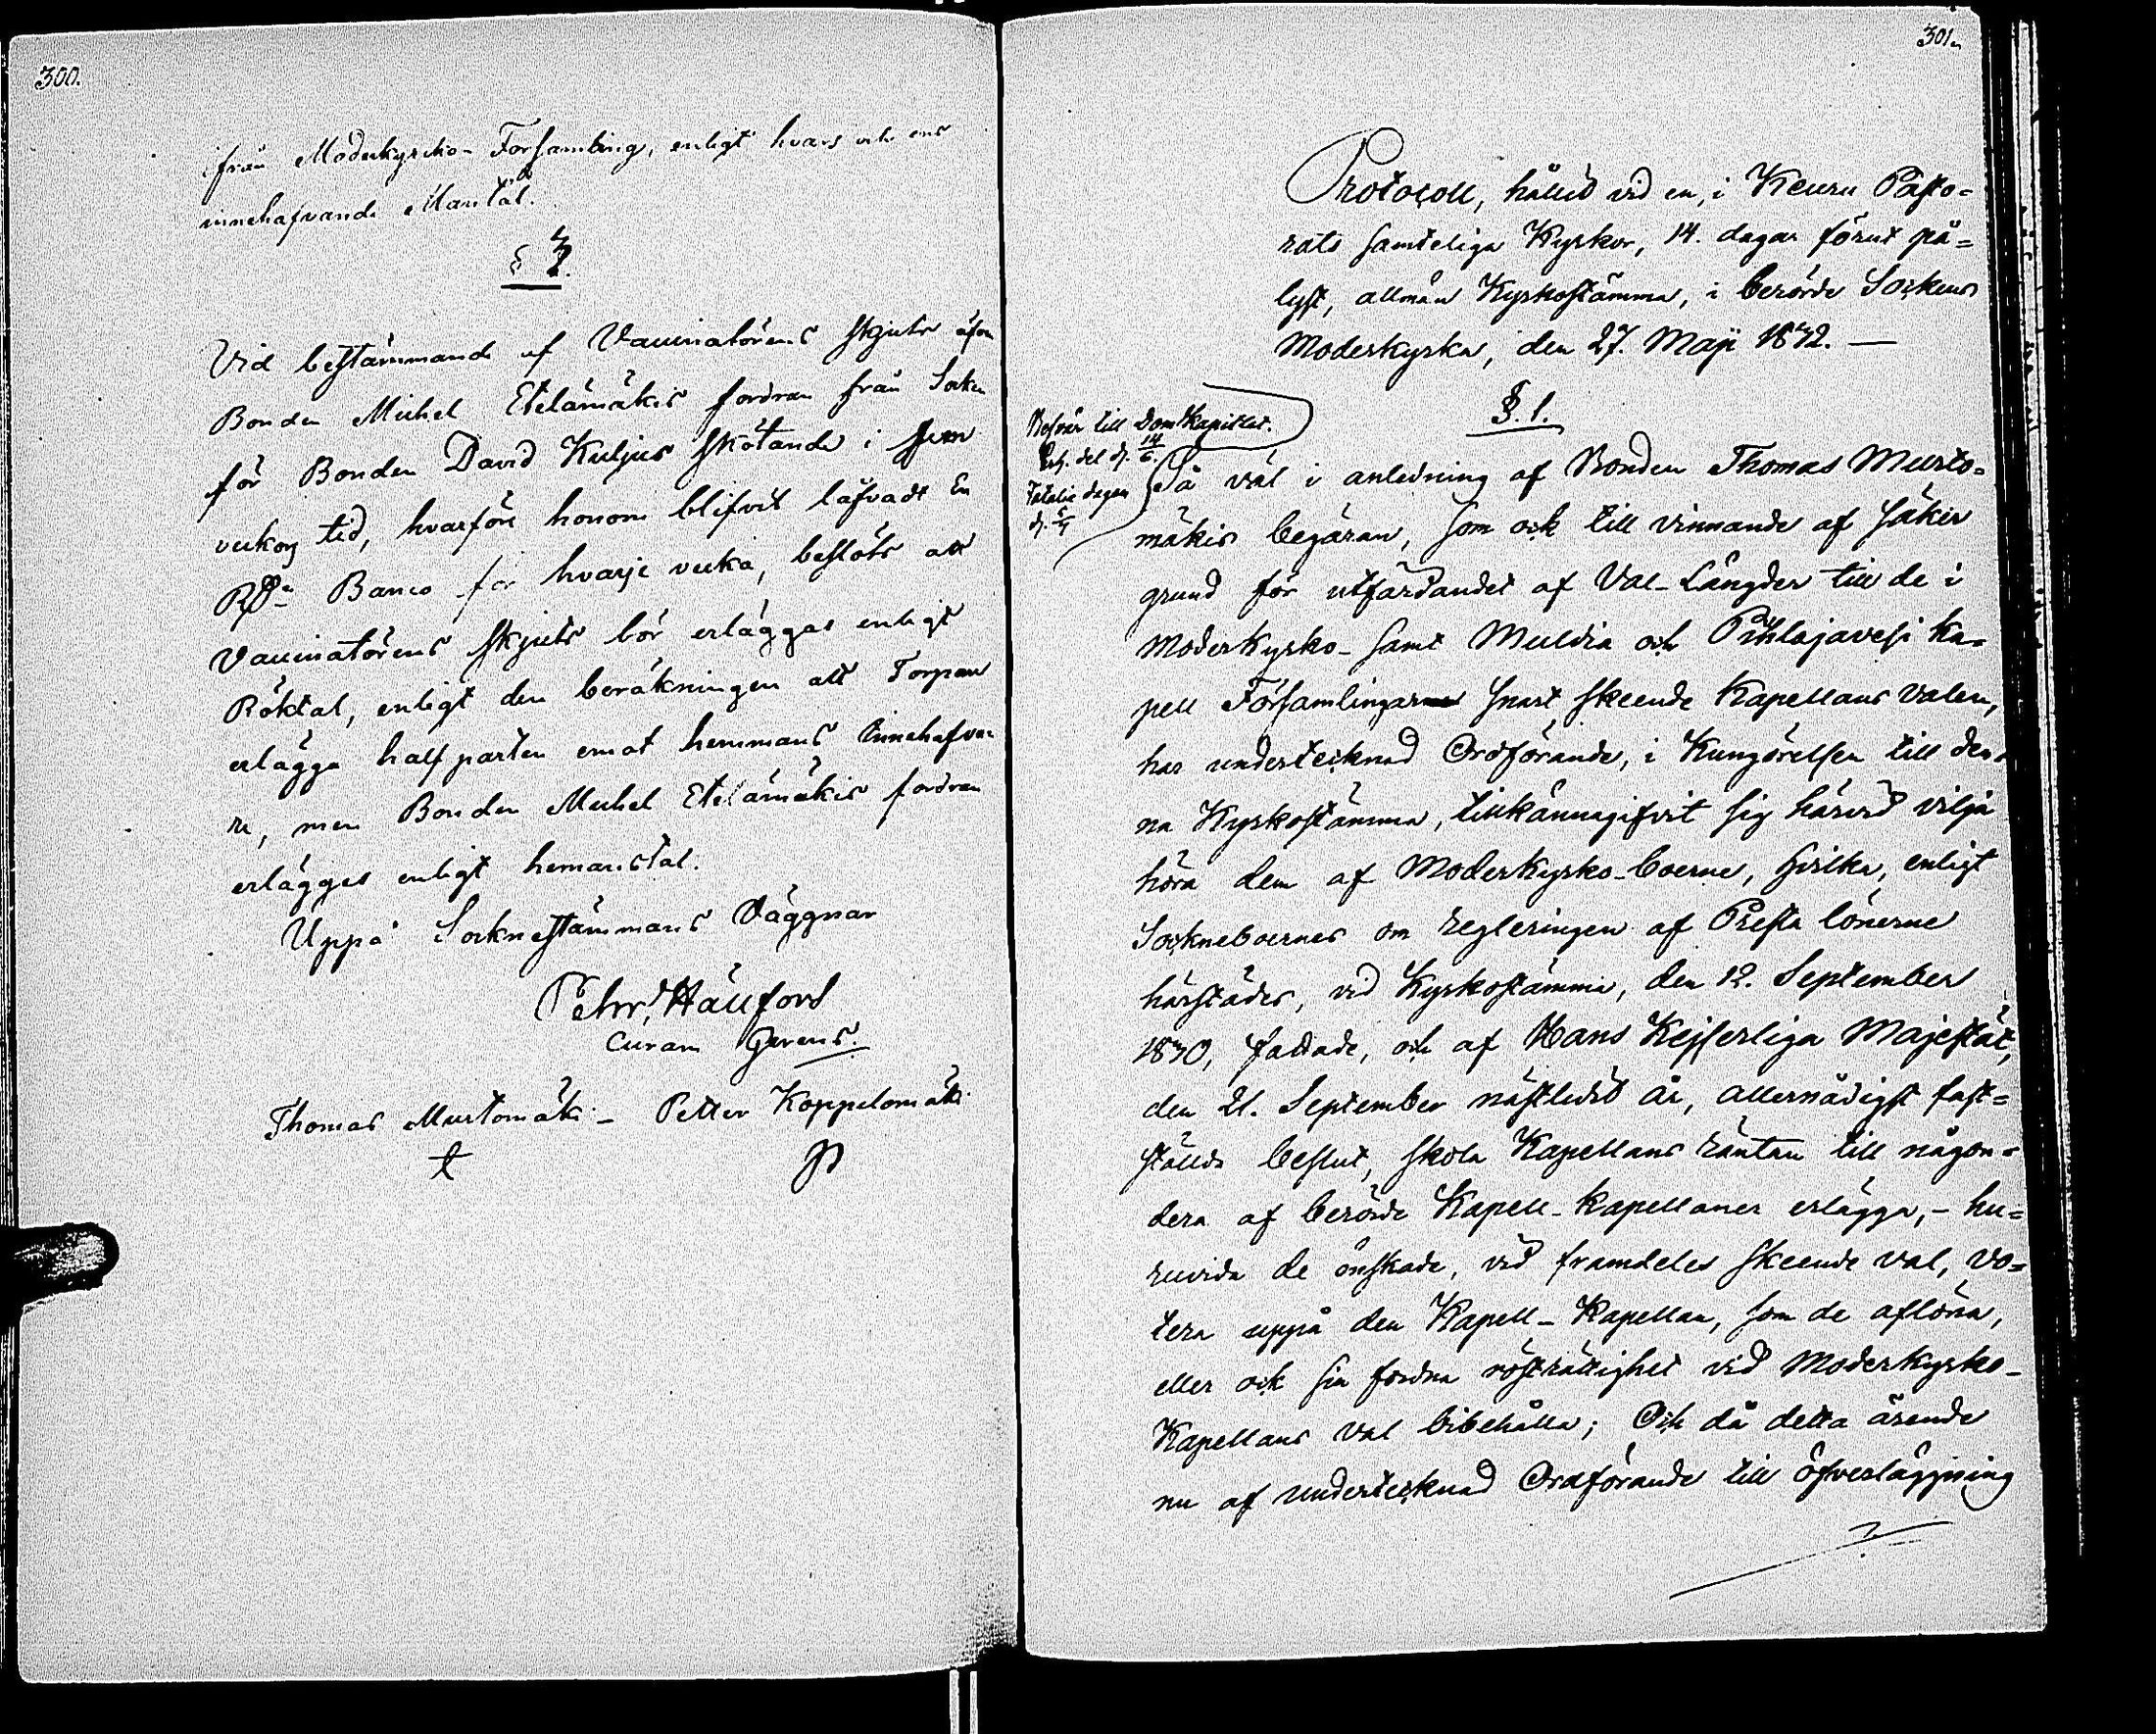 300.
ifrån Moderkyrko-Församling, enligt hvars och ens
innehafvande Mantal.
§
Vid bestämmande af Vaccinatörens skjuts äfven
Bonden Michel Etelämäkis fordran från Socken
för Bonden David Kuljus skötande i fem
veckors tid, hvarföre honom blifvit låfvadt En
Rd Banco för hvarje vecka, beslöts att
Vaccinatörens skjuts bör erläggas enligt
Röktal, enligt den beräkningen att Torpare
erlägga halfparten emot hemmans Innehafva-
re, men Bonden Michel Etelämäkis fordran
erlägges enligt hemanstal.
Uppå Socknestämmans Väggnar
Petr. Hällfors
Curam Gerens.
Thomas Murtomäki – Petter Koppelomäki
301.
Protocoll, hållit vid en, i Keuru Pasto-
rats samteliga Kyrkor, 14. dagar förut på-
lyst, allmän Kyrkostämma, i berörde Sockens
Moderkyrka, den 27. Maji 1842. —
§. 1.
Besvär till DomKapitlet.
14/6.
dagen
Så väl i anledning af Bonden Thomas Murto-
mäkis begäran, som ock till vinnande af säker
grund för utfärdandet af Val-Längder till de i
ModerKyrko- samt Multia och Pihlajavesi Ka-
pell Församlingar snart skeende Kapellans valen,
har undertecknad Ordförande, i Kungörelsen till den-
na Kyrkostämma, tillkännagifvit sig härvid vilja
höra dem af ModerKyrko-boerne, hvilka, enligt
Sockneboernes om regleringen af Presta lönerne
härstädes, vid Kyrkostämma, den 12. September
1830, fattade, och af Hans Kejserliga Majestät,
den 21. September nästledit år, allernådigst fast-
stälde beslut, skola Kapellans räntan till någon-
dera af berörde Kapell-kapellaner erlägga, – hu-
ruvida de önskade, vid framdeles skeende val, vo-
tera uppå den Kapell-Kapellan, som de aflöna,
eller ock sin fordna rösträttighet vid ModerKyrko-
Kapellans val bibehålla; Och då detta ärende
nu af undertecknad Ordförande till öfverläggning